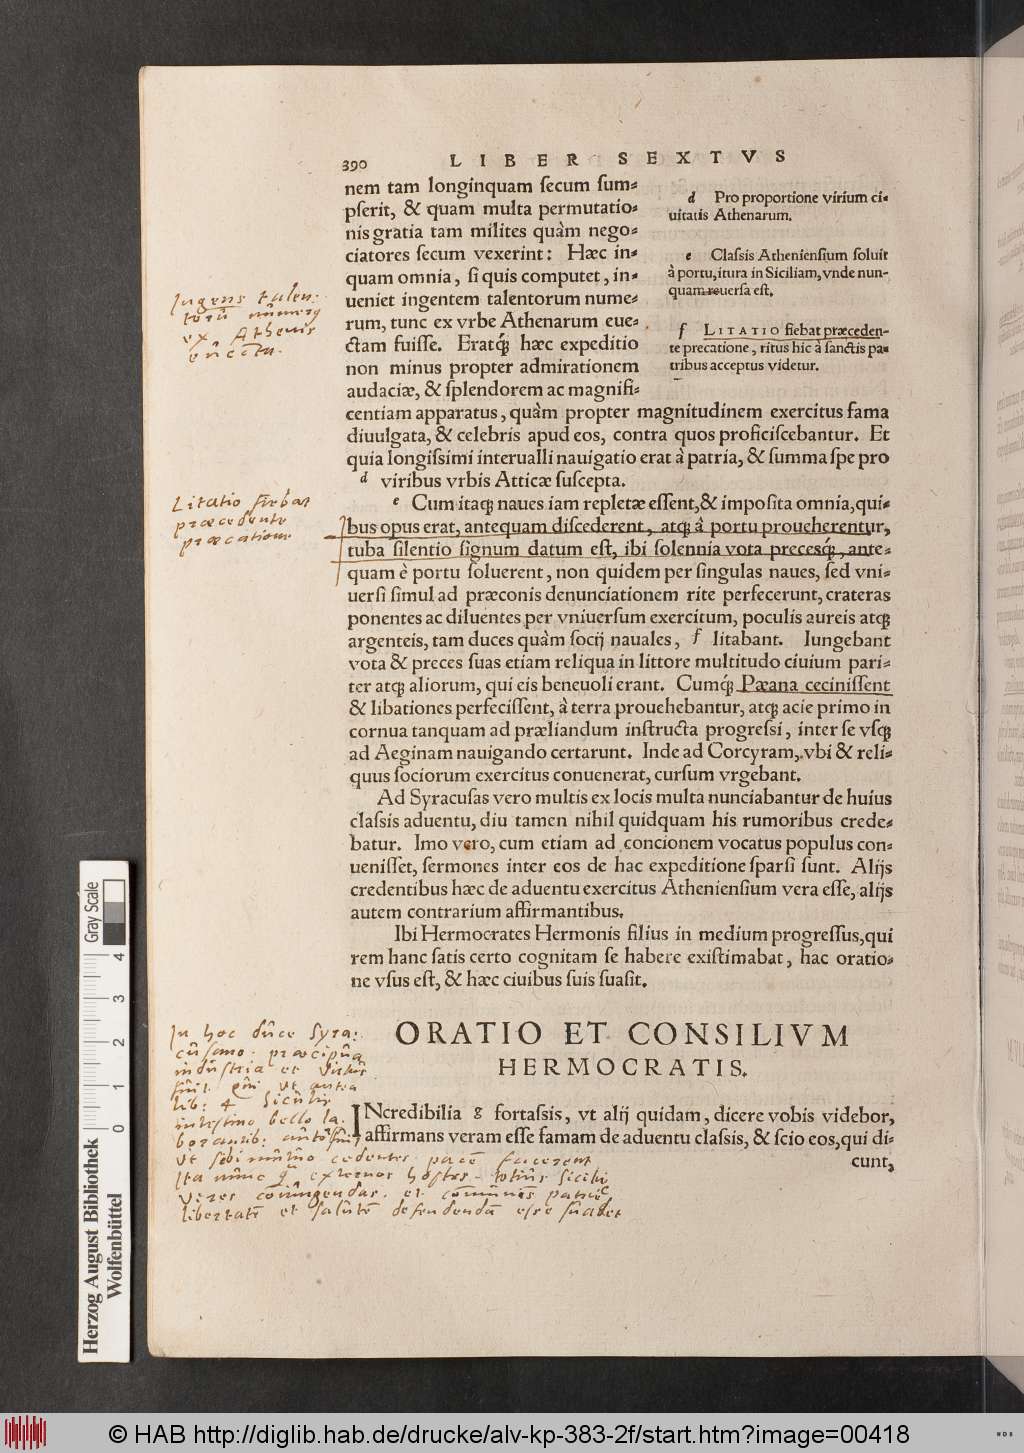 390 LIBER SEXTVS
nem tam longinquam ſecum ſum⸗
pſerit, & quam multa permutatio⸗
nis gratia tam milites quàm nego⸗
ciatores ſecum vexerint: Hæc in⸗
quam omnia, ſi quis computet, in⸗
ueniet ingentem talentorum nume⸗
rum, tunc ex vrbe Athenarum eue⸗
ctam fuiſſe. Eratq́ꝫ hæc expeditio
non minus propter admirationem
audaciæ, & ſplendorem ac magnifi⸗
centiam apparatus, quàm propter magnitudinem exercitus fama
diuulgata, & celebris apud eos, contra quos proficiſcebantur. Et
quia longiſsimi interualli nauigatio erat à patria, & ſumma ſpe pro
d viribus vrbis Atticæ ſuſcepta.
d Pro proportione virium ci⸗
uitatis Athenarum.
e Claſsis Athenienſium ſoluit
à portu, itura in Siciliam, vnde nun-
quam reuerſa eſt.
f LITATIO fiebat præceden-
te precatione, ritus hic à ſanctis pa⸗
tribus acceptus videtur.
Ingens talen:
torū numerꝰ
ex Athenis
euecta.
e Cum itaqꝫ naues iam repletæ eſſent, & impoſita omnia, qui⸗
bus opus erat, antequam diſcederent, atqꝫ à portu proueherentur,
tuba ſilentio ſignum datum eſt, ibi ſolennia vota precesq́ꝫ, ante⸗
quam è portu ſoluerent, non quidem per ſingulas naues, ſed vni⸗
uerſi ſimul ad præconis denunciationem rite perfecerunt, crateras
ponentes ac diluentes per vniuerſum exercitum, poculis aureis atqꝫ
argenteis, tam duces quàm ſocij nauales, f litabant. Iungebant
vota & preces ſuas etiam reliqua in littore multitudo ciuium pari⸗
ter atqꝫ aliorum, qui eis beneuoli erant. Cumq́ꝫ Pæana ceciniſſent
& libationes perfeciſſent, à terra prouehebantur, atqꝫ acie primo in
cornua tanquam ad præliandum inſtructa progreſsi, inter ſe vſqꝫ
ad Aeginam nauigando certarunt. Inde ad Corcyram, vbi & reli⸗
quus ſociorum exercitus conuenerat, curſum vrgebant.
Litatio fiebat
præcedente
præcatione
Ad Syracuſas vero multis ex locis multa nunciabantur de huius
claſsis aduentu, diu tamen nihil quidquam his rumoribus crede⸗
batur. Imo vero, cum etiam ad concionem vocatus populus con⸗
ueniſſet, ſermones inter eos de hac expeditione ſparſi ſunt. Alijs
credentibus hæc de aduentu exercitus Athenienſium vera eſſe, alijs
autem contrarium affirmantibus.
Ibi Hermocrates Hermonis filius in medium progreſſus, qui
rem hanc ſatis certo cognitam ſe habere exiſtimabat, hac oratio⸗
ne vſus eſt, & hæc ciuibus ſuis ſuaſit.
ORATIO ET CONSILIVM
HERMOCRATIS.
INcredibilia g fortaſsis, vt alij quidam, dicere vobis videbor,
affirmans veram eſſe famam de aduentu claſsis, & ſcio eos, qui di⸗
cunt,
In hoc duce Syra:
cusano: præcipua
industria et virtus
fuit. ut antea
lib: 4 Siculis
intestino bello la:
borantib:
ut sibi mutuo cedentes pacē facerent
Ita nunc externos hostes totius Sicili
vires coniungendas. et communē patriæ
libertatē et salutē defendendā esse suadet
Herzog August Bibliothek
Wolfenbüttel
0 1 2 3 4
Gray Scale
© HAB http://diglib.hab.de/drucke/alv-kp-383-2f/start.htm?image=00418